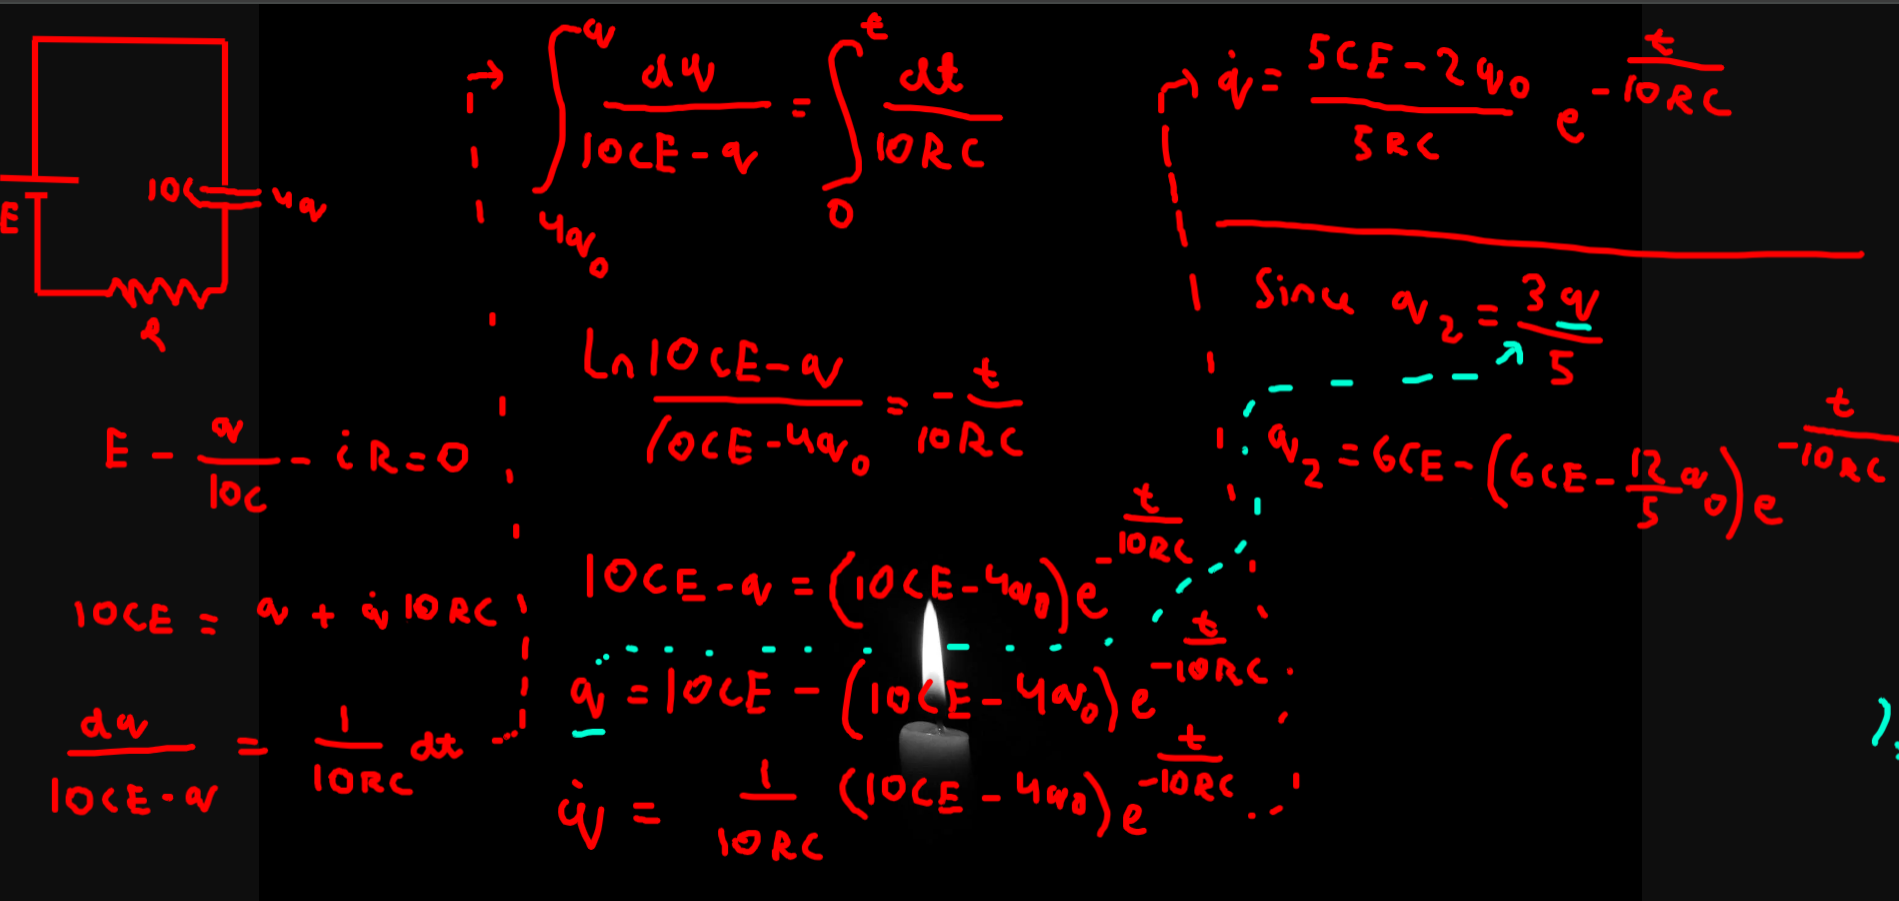 E
10C
4q
R
E - q/10C - iR = 0
10CE = q + q̇ 10RC
dq/(10CE - q) = 1/(10RC) dt
∫_{4q₀}^{q} dq/(10CE - q) = ∫_{0}^{t} dt/(10RC)
Ln (10CE - q)/(10CE - 4q₀) = - t/(10RC)
10CE - q = (10CE - 4q₀) e^{- t/(10RC)}
q = 10CE - (10CE - 4q₀) e^{t/(-10RC)}
q̇ = 1/(10RC) (10CE - 4q₀) e^{t/(-10RC)}
q̇ = (5CE - 2q₀)/(5RC) e^{- t/(10RC)}
Since q₂ = 3q/5
q₂ = 6CE - (6CE - 12/5 q₀) e^{t/(-10RC)}